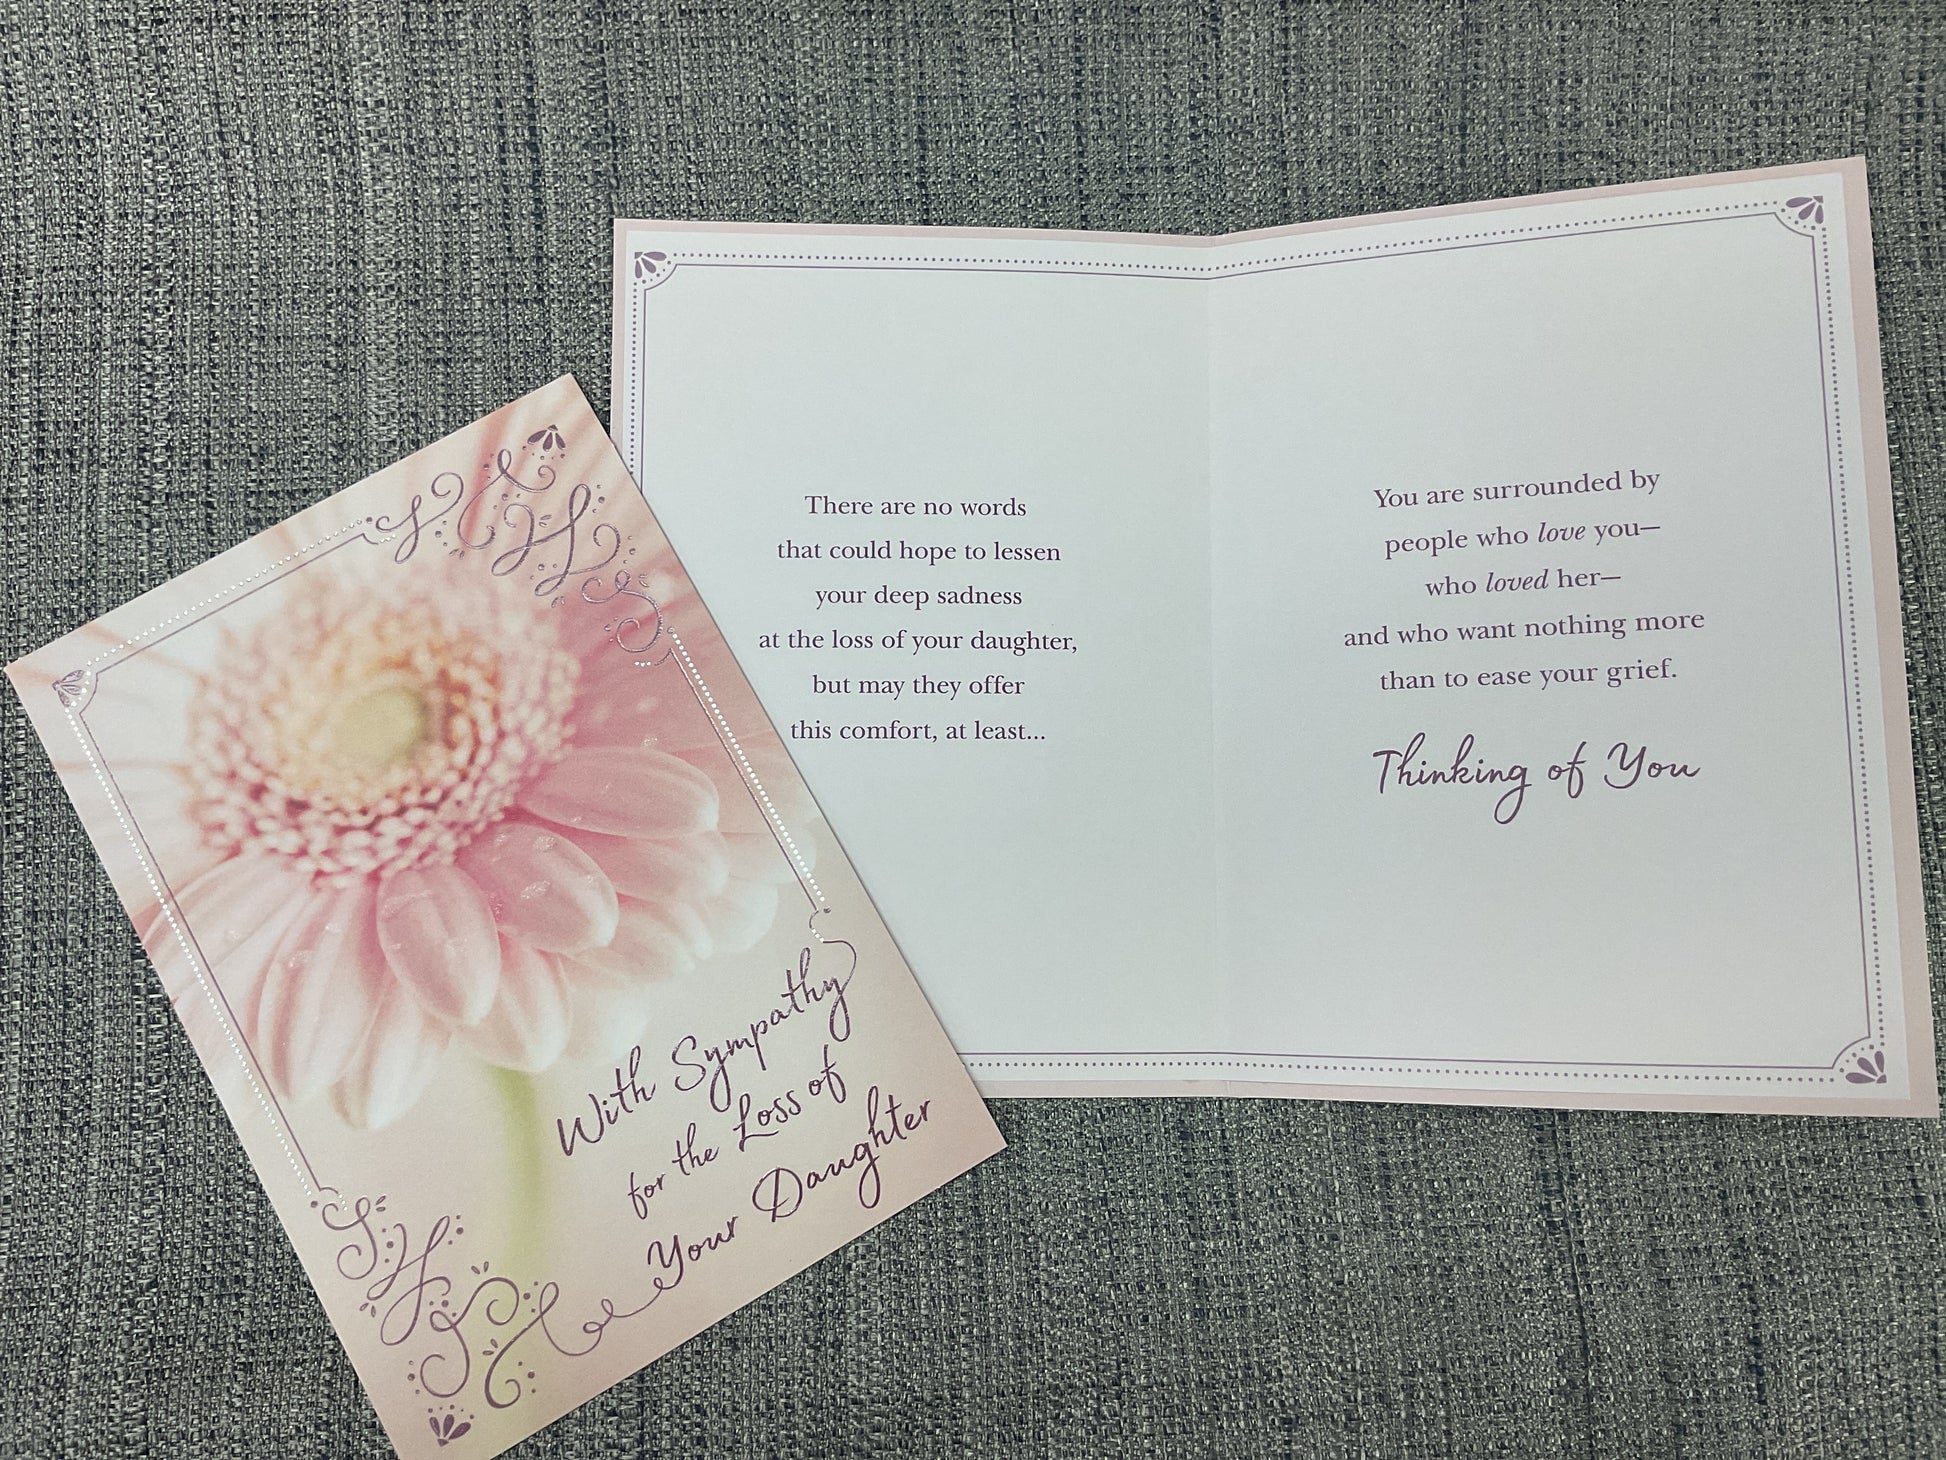 With Sympathy
for the Loss of
Your Daughter
There are no words
that could hope to lessen
your deep sadness
at the loss of your daughter,
but may they offer
this comfort, at least...
You are surrounded by
people who love you—
who loved her—
and who want nothing more
than to ease your grief.
Thinking of You